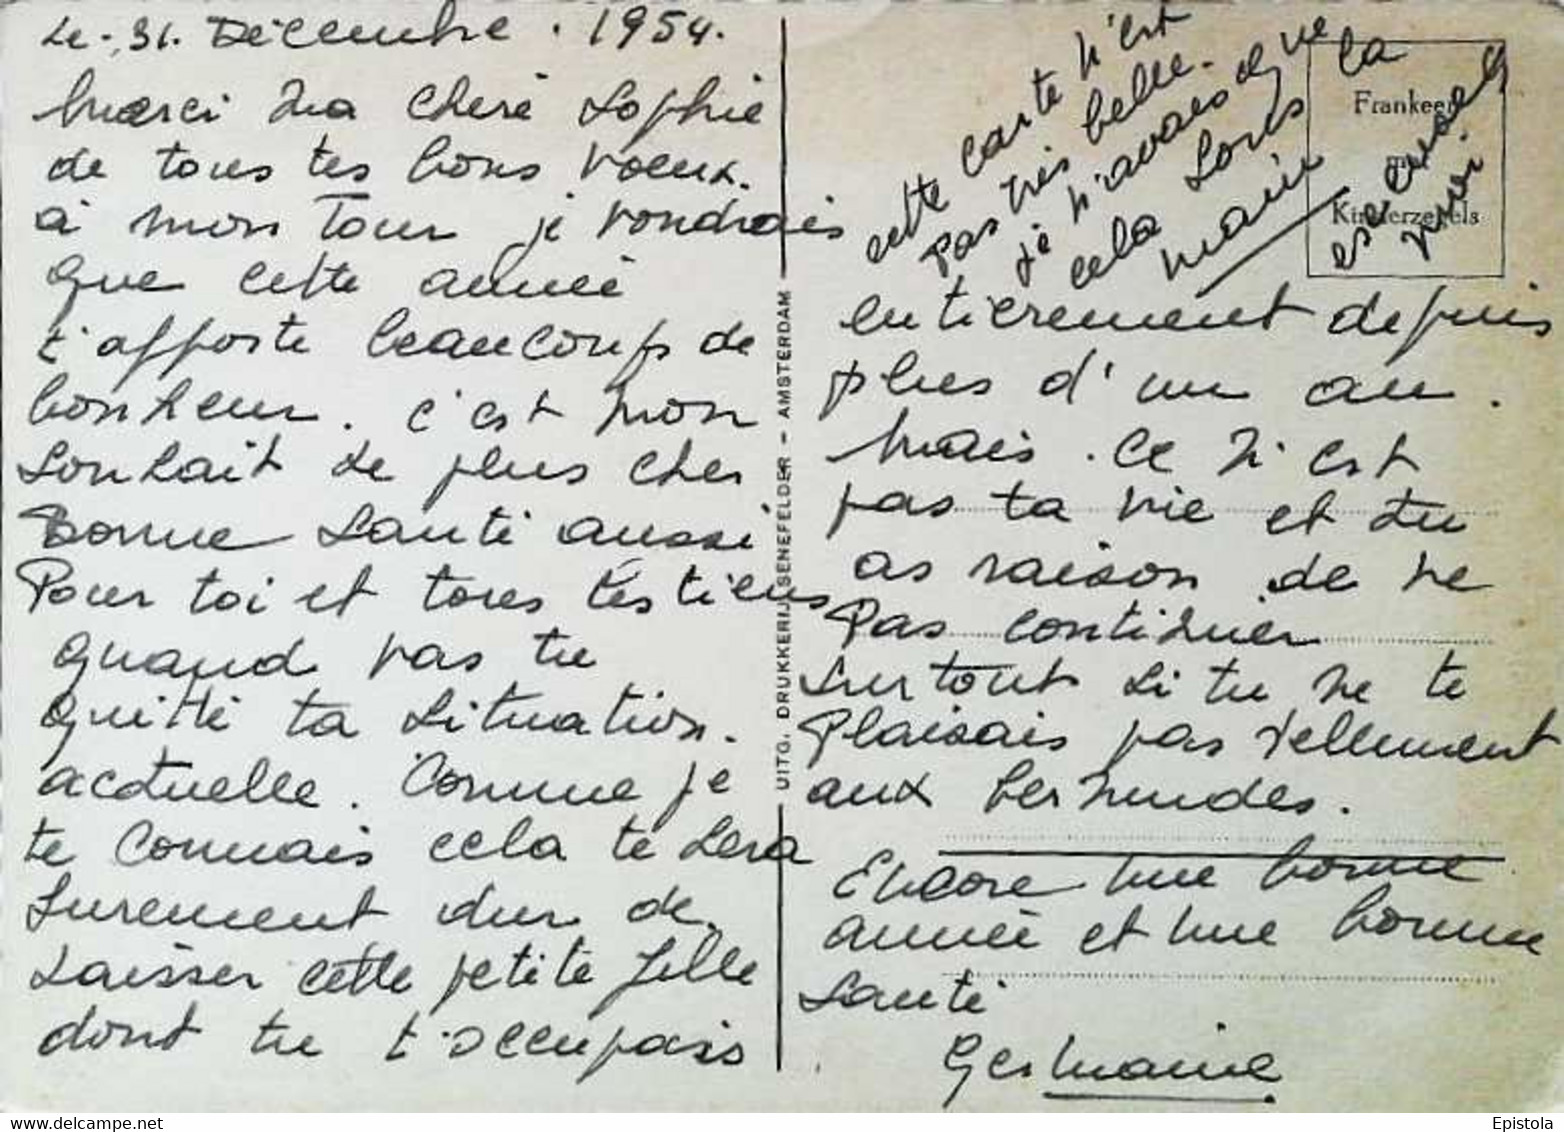 Le 31. Décembre . 1954.
Merci Ma cheré Sophie
de tous tes bons voeux.
à mon Tour je voudrais
que cette année
t'apporte beaucoup de
bonheur. c'est mon
Souhait le plus cher
Bonne Santé aussi
Pour toi et tous tes tiens
quand vas tu
quitté ta situation.
actuelle. Comme je
te Connais cela te Sera
Surement dur de
Laisser cette petite fille
dont tu t'occupais
entierement depuis
plus d'un an.
Mais. Ce n'est
pas ta vie et tu
as raison de ne
Pas continuer
surtout si tu ne te
Plaisais pas tellement
aux bermudes.
Encore une bonne
année et une bonne
Santé
Germaine
cette carte n'est
pas très belle.
je n'avais que
cela Sous la
main
excuses
Frankeer
Kinderzegels
UITG. DRUKKERIJ SENEFELDER - AMSTERDAM
Epistola